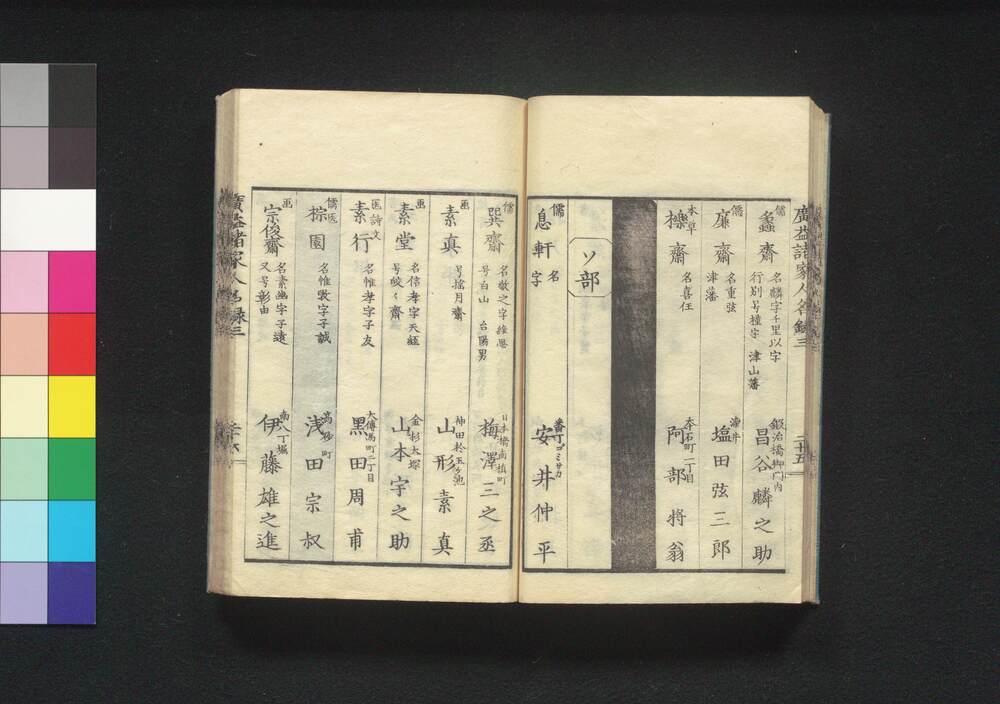 廣益諸家人名録三
二十五
儒
螽齋
名麟字千里以字
行別号橦字 津山藩
鍛治橋御門内
昌谷麟之助
儒
廉齋
名重弦
津藩
塩田弦三郎
本草
櫟齋
名喜任
本石町二丁目
阿部将翁
ソ部
儒
息軒
名
字
番丁ゴミサカ
安井仲平
儒
巽齋
号白山
日本橋南槙町
梅澤三之丞
画
素真
号擔月齋
神田於玉ケ池
山形素真
画
素堂
名信孝字天経
金杉大塚
山本字之助
医詩文
素行
名惟孝字子友
大傳馬町二丁目
黒田周甫
儒医
棕園
名惟敦字子誠
高砂町
浅田宗叔
画
宗俊齋
名素幽字子遠
又号彰由
南八丁堀
伊藤雄之進
廣益諸家人名録三
二十六